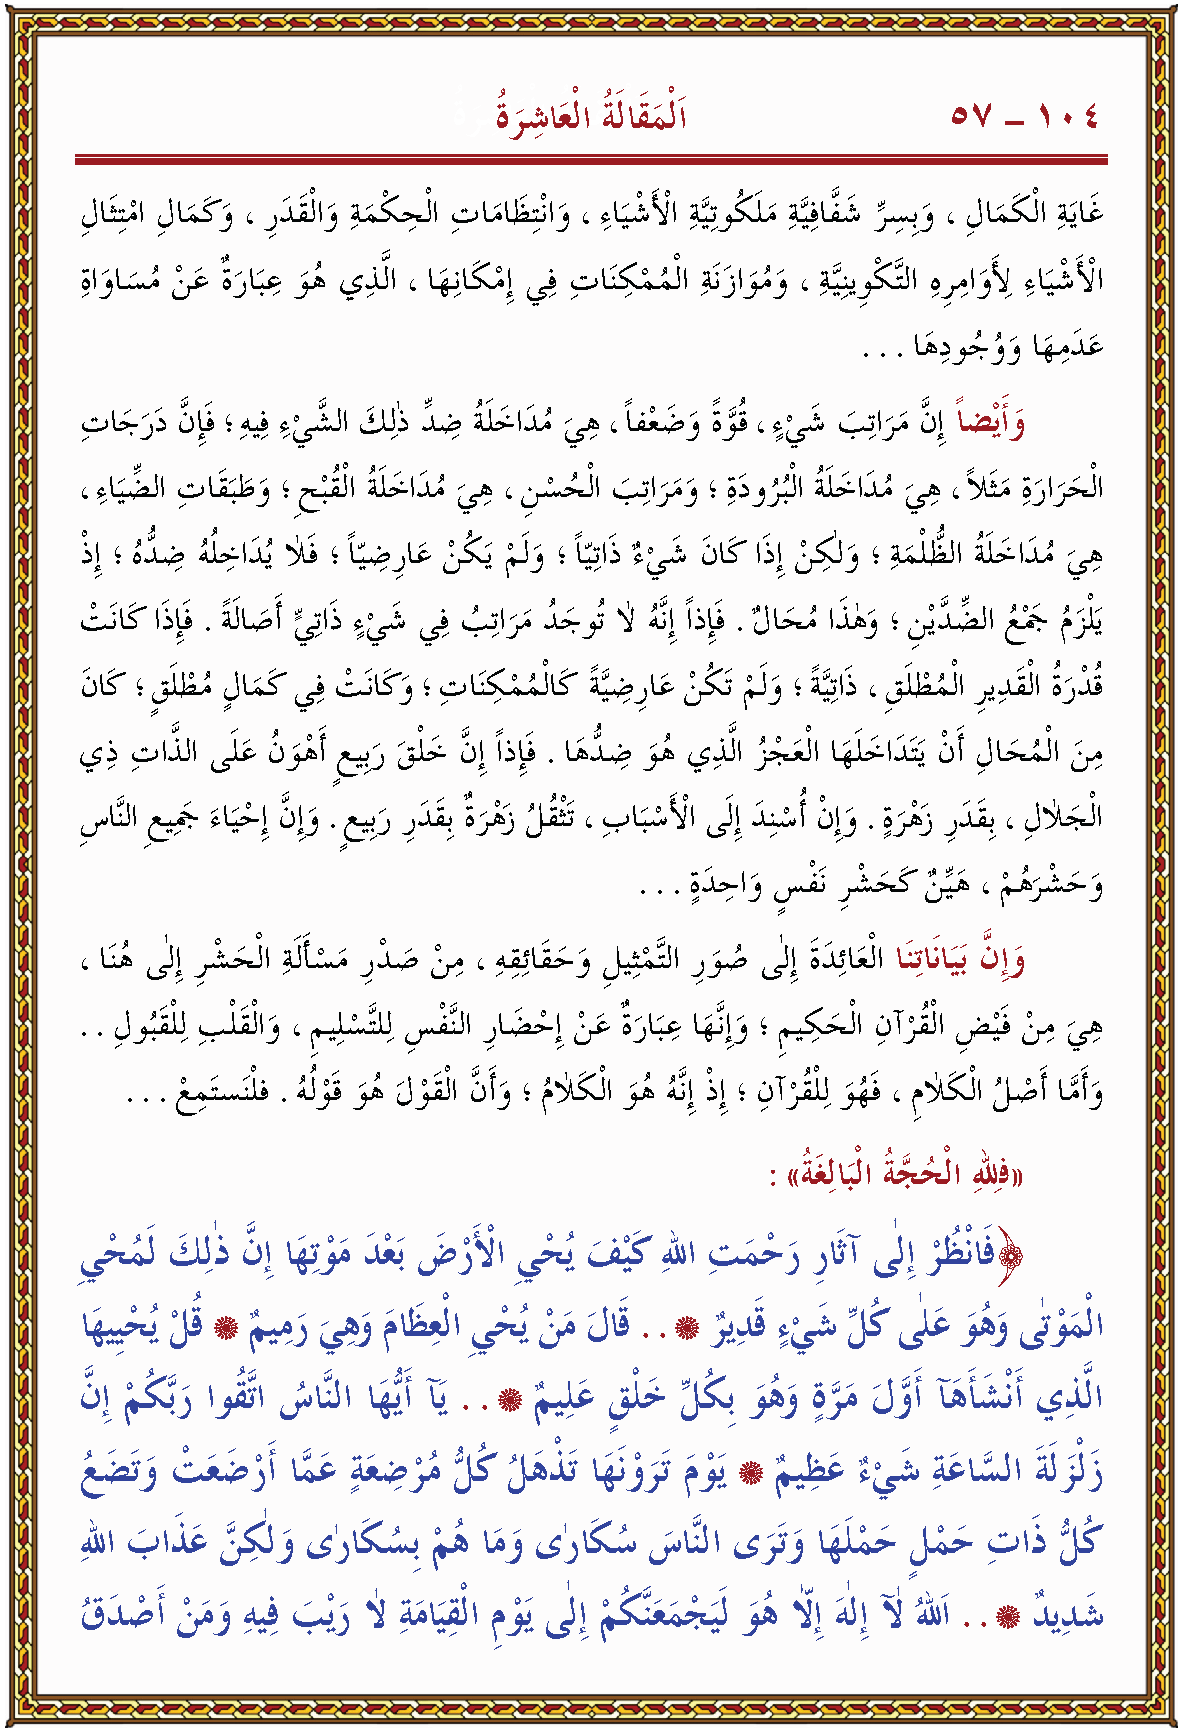 ١٠٤ ــ ٥٧ اَلْمَقَالَةُ الْعَاشِرَةُ
غَايَةِ الْكَمَالِ ، وَبِسِرِّ شَفَّافِيَّةِ مَلَكُوتِيَّةِ الْأَشْيَاءِ ، وَانْتِظَامَاتِ الْحِكْمَةِ وَالْقَدَرِ ، وَكَمَالِ امْتِثَالِ
الْأَشْيَاءِ لِأَوَامِرِهِ التَّكْوِينِيَّةِ ، وَمُوَازَنَةِ الْمُمْكِنَاتِ فِي إِمْكَانِهَا ، الَّذِي هُوَ عِبَارَةٌ عَنْ مُسَاوَاةِ
عَدَمِهَا وَوُجُودِهَا . . .
وَأَيْضاً إِنَّ مَرَاتِبَ شَيْءٍ ، قُوَّةً وَضَعْفاً ، هِيَ مُدَاخَلَةُ ضِدِّ ذٰلِكَ الشَّيْءِ فِيهِ ؛ فَإِنَّ دَرَجَاتِ
الْحَرَارَةِ مَثَلاً ، هِيَ مُدَاخَلَةُ الْبُرُودَةِ ؛ وَمَرَاتِبَ الْحُسْنِ ، هِيَ مُدَاخَلَةُ الْقُبْحِ ؛ وَطَبَقَاتِ الضِّيَاءِ ،
هِيَ مُدَاخَلَةُ الظُّلْمَةِ ؛ وَلٰكِنْ إِذَا كَانَ شَيْءٌ ذَاتِيّاً ؛ وَلَمْ يَكُنْ عَارِضِيّاً ؛ فَلَا يُدَاخِلُهُ ضِدُّهُ ؛ إِذْ
يَلْزَمُ جَمْعُ الضِّدَّيْنِ ؛ وَهٰذَا مُحَالٌ . فَإِذاً إِنَّهُ لَا تُوجَدُ مَرَاتِبُ فِي شَيْءٍ ذَاتِيٍّ أَصَالَةً . فَإِذَا كَانَتْ
قُدْرَةُ الْقَدِيرِ الْمُطْلَقِ ، ذَاتِيَّةً ؛ وَلَمْ تَكُنْ عَارِضِيَّةً كَالْمُمْكِنَاتِ ؛ وَكَانَتْ فِي كَمَالٍ مُطْلَقٍ ؛ كَانَ
مِنَ الْمُحَالِ أَنْ يَتَدَاخَلَهَا الْعَجْزُ الَّذِي هُوَ ضِدُّهَا . فَإِذاً إِنَّ خَلْقَ رَبِيعٍ أَهْوَنُ عَلَى الذَّاتِ ذِي
الْجَلَالِ ، بِقَدَرِ زَهْرَةٍ . وَإِنْ أُسْنِدَ إِلَى الْأَسْبَابِ ، تَثْقُلُ زَهْرَةٌ بِقَدَرِ رَبِيعٍ . وَإِنَّ إِحْيَاءَ جَمِيعِ النَّاسِ
وَحَشْرَهُمْ ، هَيِّنٌ كَحَشْرِ نَفْسٍ وَاحِدَةٍ . . .
وَإِنَّ بَيَانَاتِنَا الْعَائِدَةَ إِلٰى صُوَرِ التَّمْثِيلِ وَحَقَائِقِهِ ، مِنْ صَدْرِ مَسْأَلَةِ الْحَشْرِ إِلٰى هُنَا ،
هِيَ مِنْ فَيْضِ الْقُرْآنِ الْحَكِيمِ ؛ وَإِنَّهَا عِبَارَةٌ عَنْ إِحْضَارِ النَّفْسِ لِلتَّسْلِيمِ ، وَالْقَلْبِ لِلْقَبُولِ . .
وَأَمَّا أَصْلُ الْكَلَامِ ، فَهُوَ لِلْقُرْآنِ ؛ إِذْ إِنَّهُ هُوَ الْكَلَامُ ؛ وَأَنَّ الْقَوْلَ هُوَ قَوْلُهُ . فلْنَستَمِعْ . . .
«فِللهِ الْحُجَّةُ الْبَالِغَةُ» :
﴿فَانْظُرْ إِلٰى آثَارِ رَحْمَتِ اللهِ كَيْفَ يُحْيِي الْأَرْضَ بَعْدَ مَوْتِهَا إِنَّ ذٰلِكَ لَمُحْيِي
الْمَوْتٰى وَهُوَ عَلٰى كُلِّ شَيْءٍ قَدِيرٌ ۞ . . قَالَ مَنْ يُحْيِي الْعِظَامَ وَهِيَ رَمِيمٌ ۞ قُلْ يُحْيِيهَا
الَّذِي أَنْشَأَهَآ أَوَّلَ مَرَّةٍ وَهُوَ بِكُلِّ خَلْقٍ عَلِيمٌ ۞ . . يَآ أَيُّهَا النَّاسُ اتَّقُوا رَبَّكُمْ إِنَّ
زَلْزَلَةَ السَّاعَةِ شَيْءٌ عَظِيمٌ ۞ يَوْمَ تَرَوْنَهَا تَذْهَلُ كُلُّ مُرْضِعَةٍ عَمَّا أَرْضَعَتْ وَتَضَعُ
كُلُّ ذَاتِ حَمْلٍ حَمْلَهَا وَتَرَى النَّاسَ سُكَارٰى وَمَا هُمْ بِسُكَارٰى وَلٰكِنَّ عَذَابَ اللهِ
شَدِيدٌ ۞ . . اَللهُ لَآ إِلٰهَ إِلَّا هُوَ لَيَجْمَعَنَّكُمْ إِلٰى يَوْمِ الْقِيَامَةِ لَا رَيْبَ فِيهِ وَمَنْ أَصْدَقُ